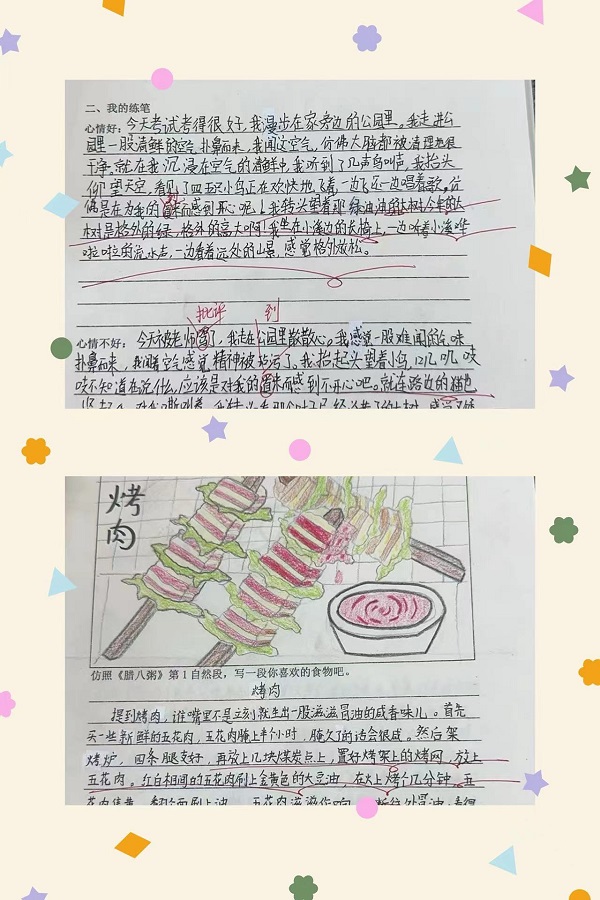 二、我的练笔
心情好：今天考试考得很好，我漫步在家旁边的公园里。我走进公
园里一股清鲜的空气扑鼻而来，我闻这空气，仿佛大脑都被清理地很
干净。就在我沉浸在空气的清鲜中，我听到了几声鸟叫声，我抬头
仰望天空，看见了四五只小鸟正在欢快地飞着，一边飞还一边唱着歌。仿
佛是在为我的而感到开心呢！我转头望着那绿油油的大树今年的大
树是格外的绿，格外的高大啊！我坐在小溪边的长椅上，一边听着小溪哗
啦啦的流水声，一边看着远处的山景，感觉格外放松。
批评 到
心情不好：今天被老师了，我走在公园里散散心。我感觉一股难闻的气味
扑鼻而来，我闻着空气感觉精神被污了。我抬起头望着小鸟，叽叽吱
吱不知道在说什么，应该是对我的而感到不开心吧。就连路边的猫也
烤
肉
仿照《腊八粥》第1自然段，写一段你喜欢的食物吧。
烤肉
提到烤肉，谁嘴里不是立刻就生出一股滋滋冒油的咸香味儿。首先
买一些新鲜的五花肉，五花肉腌上半个小时，腌久了的话会很咸。然后架
烤炉，四条腿支好，再放上几块煤炭点上，置好烤架上的烤网，放上
五花肉。红白相间的五花肉刷上金黄色的大豆油，在火上烤个几分钟，五